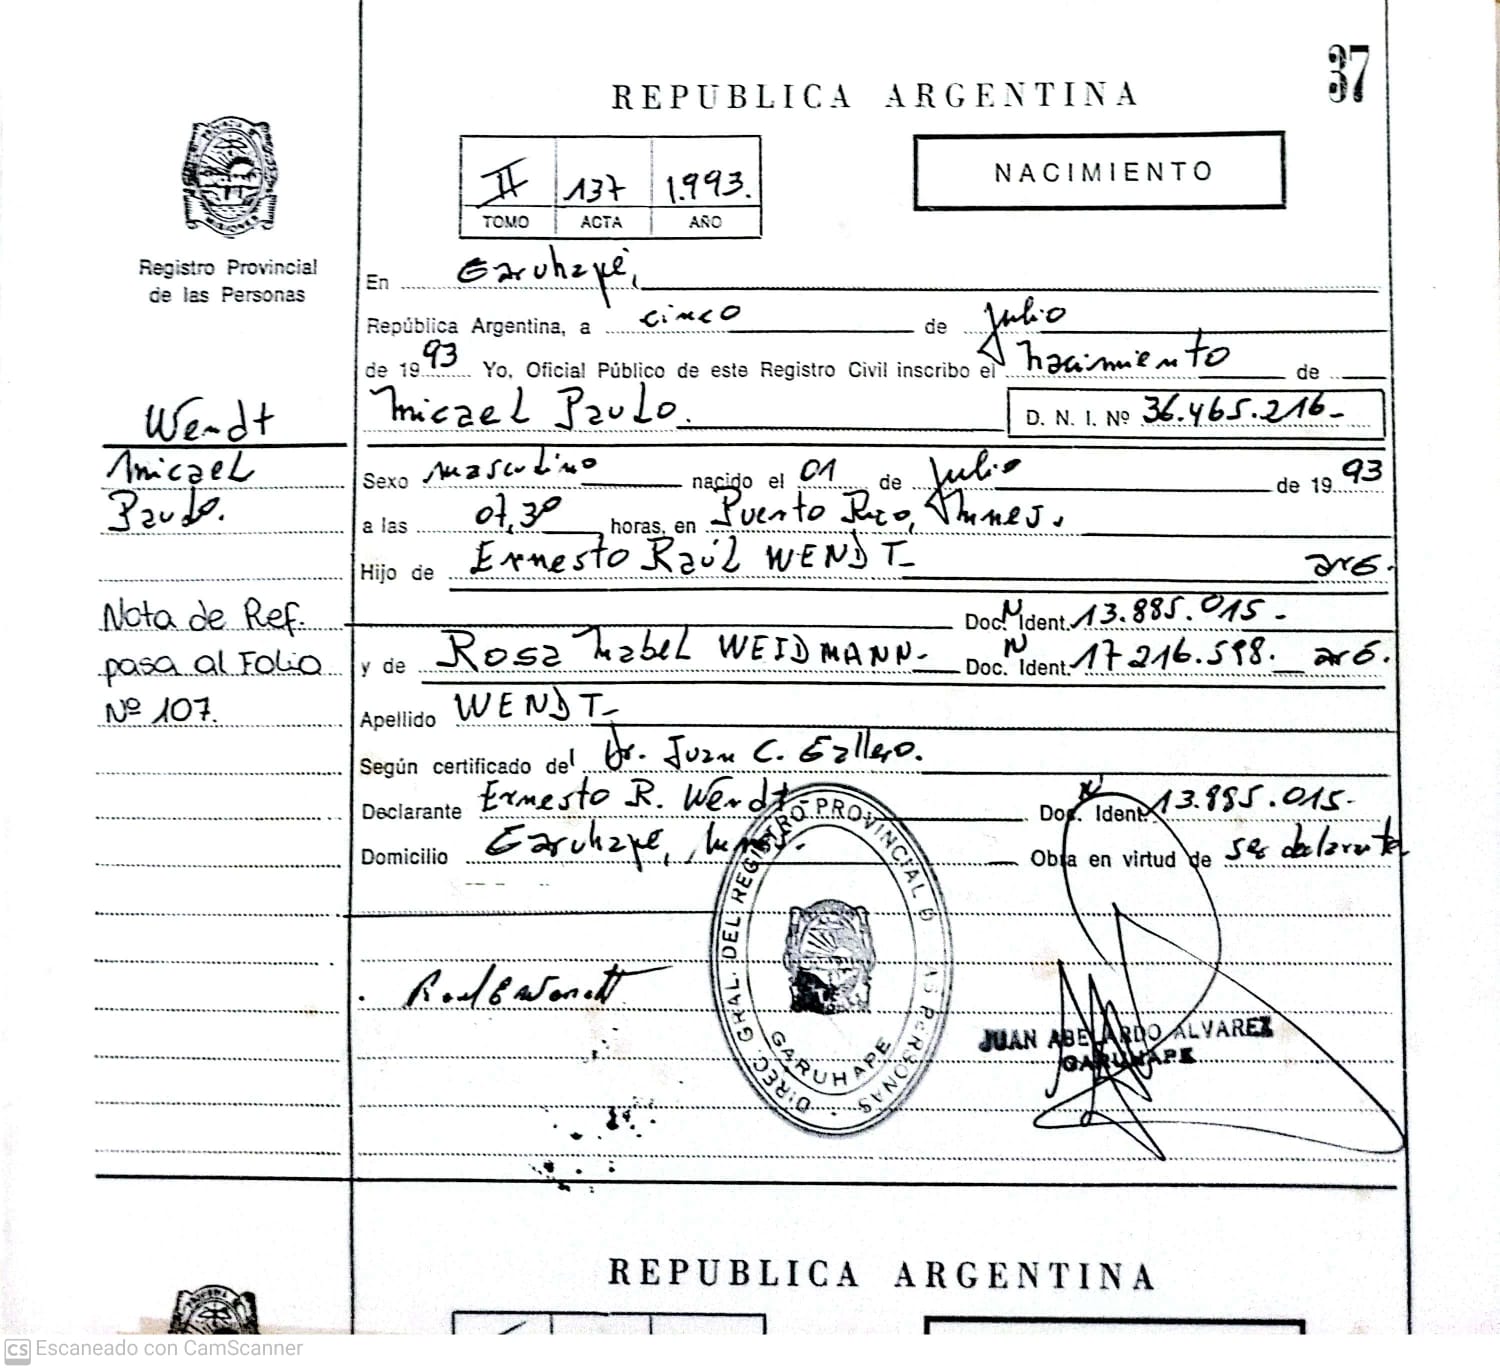 37
REPUBLICA ARGENTINA
NACIMIENTO
II 137 1.993.
TOMO ACTA AÑO
Registro Provincial
de las Personas
En Garuhapé,
República Argentina, a cinco de Julio
de 1993 Yo, Oficial Público de este Registro Civil inscribo el nacimiento de
Micael Paulo. D. N. I. Nº 36.465.216-
Wendt
Micael
Paulo.
Sexo masculino nacido el 01 de Julio de 1993
a las 07,30 horas, en Puerto Rico, Mnes.
Hijo de Ernesto Raúl WENDT- arg.
Doc. N Ident. 13.885.015-
y de Rosa Mabel WEIDMANN- Doc. N Ident. 17216.598. arg.
Nota de Ref.
pasa al Folio
Nº 107.
Apellido WENDT-
Según certificado del Dr. Juan C. Gallero.
Declarante Ernesto R. Wendt Doc. N Ident. 13.885.015-
Domicilio Garuhapé, Mnes. Obra en virtud de ser declarante
DIREC. GRAL. DEL REGISTRO PROVINCIAL D LAS PERSONAS
GARUHAPE
JUAN ABELARDO ALVAREZ
GARUHAPE
REPUBLICA ARGENTINA
CS Escaneado con CamScanner